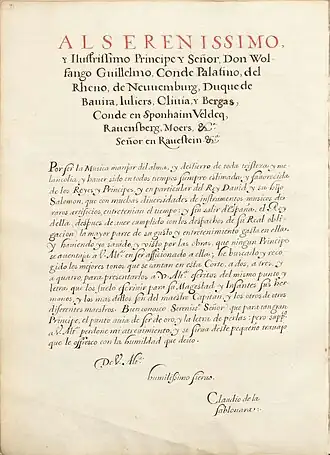 AL SERENISSIMO,
y Ilustrissimo Principe y Señor, Don Wol-
fango Guillelmo, Conde Palatino, del
Rheno, de Neuuemburg, Duque de
Bauira, Iuliers, Cliuia, y Bergas,
Conde en Sponhaim Veldeq,
Rauensberg, Moers, &c.ª
Señor en Rauestein &c.ª
Por ser la Musica manjar del alma, y destierro de toda tristeza, y me-
lancolia, y hauer sido en todos tiempos siempre estimada, y fauorecida
de los Reyes, y Principes, y en particular del Rey Dauid, y su hijo
Salomon, que con muchas diuersidades de instrumentos musicos de
raros artificios, entretenian el tiempo; y sin salir de España, el Rey
della, despues de auer cumplido con los despachos de su Real obli-
gacion; la mayor parte de su gusto y entretenimiento gasta en ellas.
y hauiendo yo sauido, y visto por las obras, que ningun Principe
se auentaja a V. Alt.ª en ser afficionado a ellas; he buscado, y reco-
gido los mejores tonos que se cantan en esta Corte, a dos, a tres, y
a quatro, para presentarlos a V. Alt.ª escritos del mismo punto y
letra que los suelo escriuir para su Magestad, y Infantes sus her-
manos, y los mas dellos son del maestro Capitan, y los otros de otros
diferentes maestros. Bien conosco Sereniss.º Señor que para tan gran
Principe, el punto auia de ser de oro, y la letra de perlas: pero supp.co
a V. Alt.ª perdone mi atreuimiento, y se sirua deste pequeño trauajo
que le offresco con la humildad que deuo.
De V. Alt.ª
humilissimo sieruo.
Claudio de la
Sablonara.